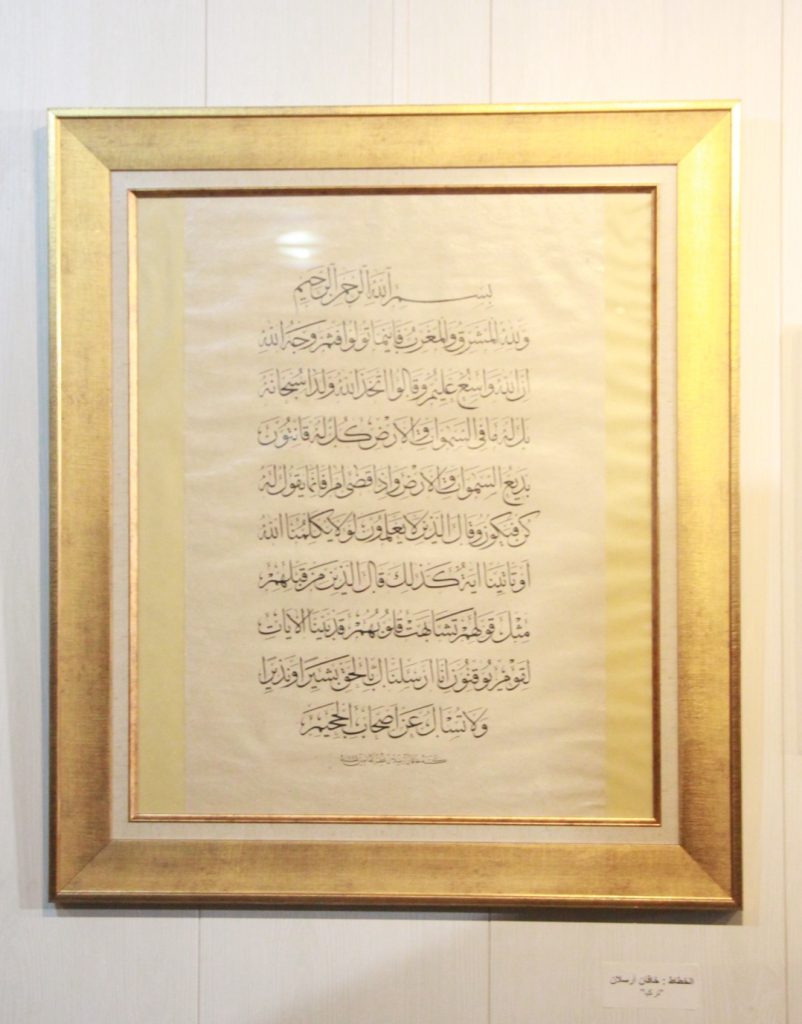 بسم الله الرحمن الرحيم
ولله المشرق والمغرب فاينما تولوا فثم وجه الله
ان الله واسع عليم وقالوا اتخذ الله ولدا سبحانه
بل له ما في السموات والارض كل له قانتون
بديع السموات والارض واذا قضى امرا فانما يقول له
كن فيكون وقال الذين لا يعلمون لولا يكلمنا الله
او تاتينا اية كذلك قال الذين من قبلهم
مثل قولهم تشابهت قلوبهم قد بينا الايات
لقوم يوقنون انا ارسلناك بالحق بشيرا ونذيرا
ولا تسأل عن اصحاب الجحيم
الخطاط : خاقان أرسلان
"تركيا"